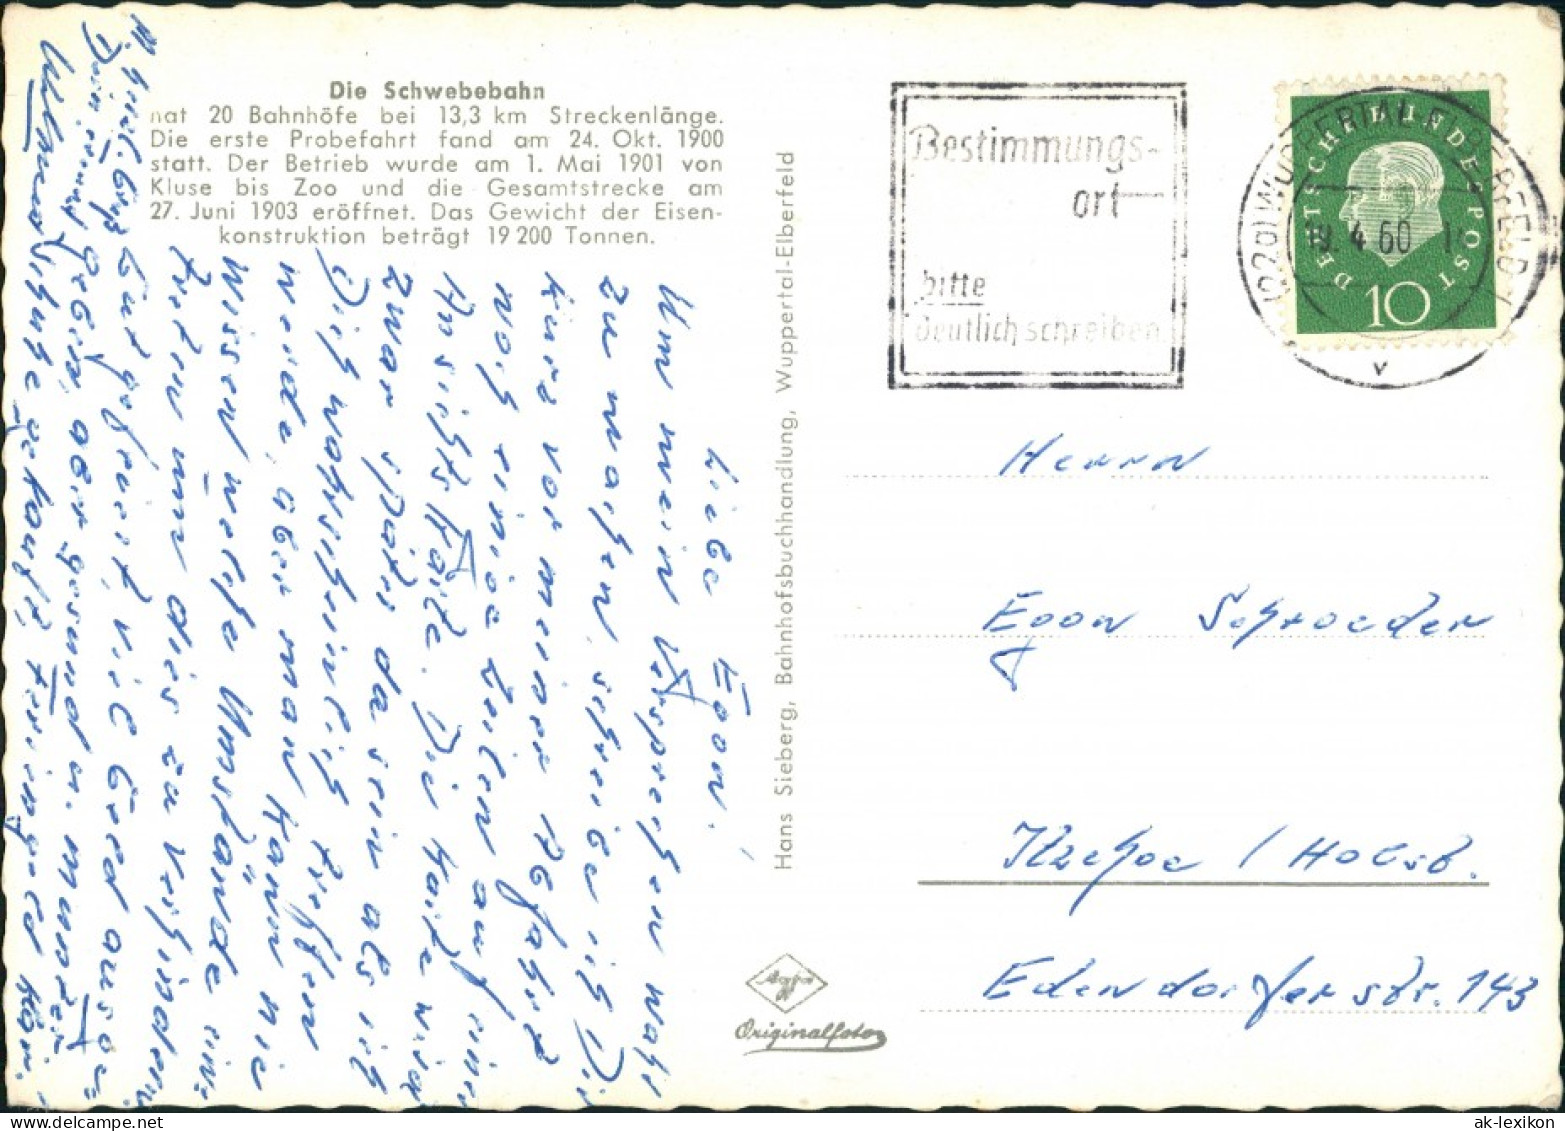 Die Schwebebahn
hat 20 Bahnhöfe bei 13,3 km Streckenlänge.
Die erste Probefahrt fand am 24. Okt. 1900
statt. Der Betrieb wurde am 1. Mai 1901 von
Kluse bis Zoo und die Gesamtstrecke am
27. Juni 1903 eröffnet. Das Gewicht der Eisen-
konstruktion beträgt 19 200 Tonnen.
Lieber Egon!
Um mein Versprechen wahr
zu machen, schreibe ich Dir
kurz vor meiner Abfahrt
noch einige Zeilen auf einer
Ansichtskarte. Die Karte wird
zwar später da sein als ich
Dich wahrscheinlich treffen
werde, aber man kann nie
wissen welche Umstände ein-
treten um dies zu verhindern.
gefreut, viel Geld auszu-
geben, aber gesund u. munter
Hans Sieberg, Bahnhofsbuchhandlung, Wuppertal-Elberfeld
Agfa
Originalfoto
Bestimmungs-
ort
bitte
deutlich schreiben
DEUTSCHE BUNDESPOST
10
(22a) WUPPERTAL-ELBERFELD
19.4.60
v
Herrn
Egon Schroeder
Itzehoe / Holst.
Edendorferstr. 143
ak-lexikon